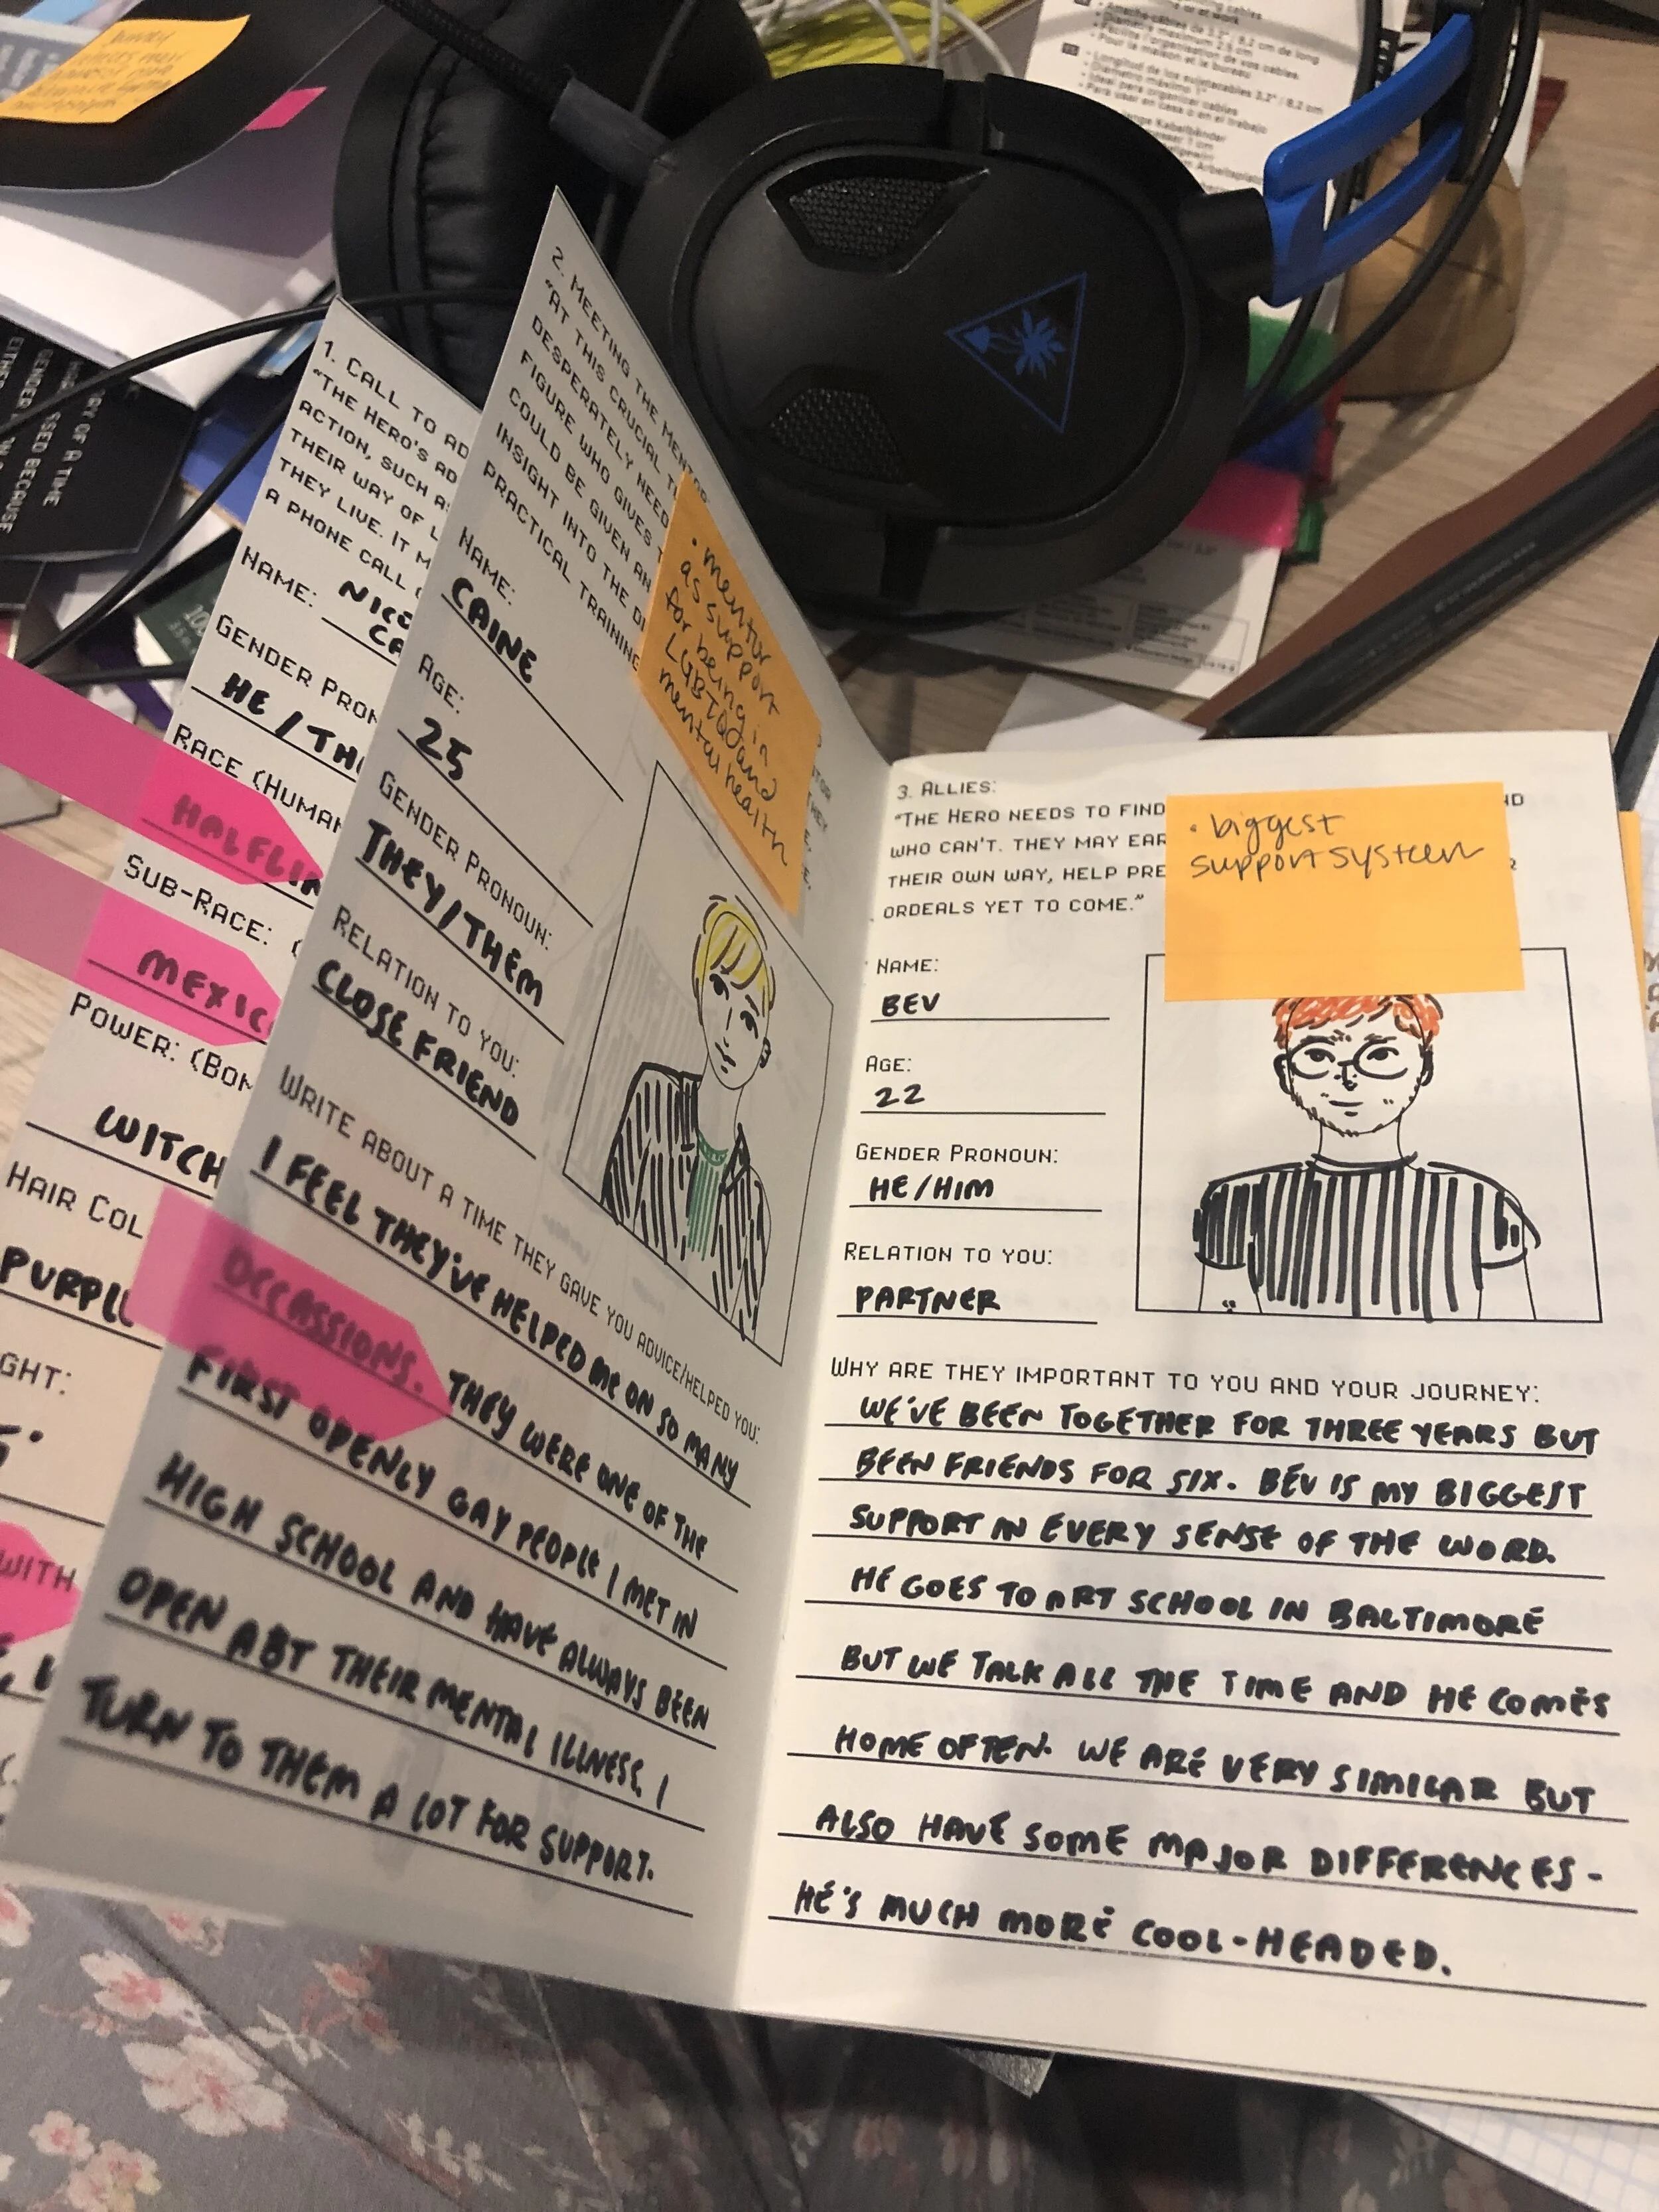 1. CALL TO AD
"THE HERO'S AD
ACTION, SUCH A
THEIR WAY OF L
THEY LIVE. IT M
A PHONE CALL
NAME:
GENDER PRON
HE / TH
RACE (HUMAN
HALFLIN
SUB-RACE: (
MEXIC
POWER: (BON
WITCH
HAIR COL
PURPL
GHT:
WITH
2. MEETING THE MENTOR
"AT THIS CRUCIAL T
DESPERATELY NEED
FIGURE WHO GIVES T
COULD BE GIVEN AN
INSIGHT INTO THE D
PRACTICAL TRAINING
• mentor
as support
for being in
LGBTQ and
mental health
NAME:
CAINE
AGE:
25
GENDER PRONOUN:
THEY/THEM
RELATION TO YOU:
CLOSE FRIEND
WRITE ABOUT A TIME THEY GAVE YOU ADVICE/HELPED YOU:
I FEEL THEY'VE HELPED ME ON SO MANY
OCCASSIONS. THEY WERE ONE OF THE
FIRST OPENLY GAY PEOPLE I MET IN
HIGH SCHOOL AND HAVE ALWAYS BEEN
OPEN ABT THEIR MENTAL ILLNESS. I
TURN TO THEM A LOT FOR SUPPORT.
3. ALLIES:
"THE HERO NEEDS TO FIND
WHO CAN'T. THEY MAY EAR
THEIR OWN WAY, HELP PRE
ORDEALS YET TO COME."
• biggest
support system
NAME:
BEV
AGE:
22
GENDER PRONOUN:
HE/HIM
RELATION TO YOU:
PARTNER
WHY ARE THEY IMPORTANT TO YOU AND YOUR JOURNEY:
WE'VE BEEN TOGETHER FOR THREE YEARS BUT
BEEN FRIENDS FOR SIX. BEV IS MY BIGGEST
SUPPORT IN EVERY SENSE OF THE WORD.
HE GOES TO ART SCHOOL IN BALTIMORE
BUT WE TALK ALL THE TIME AND HE COMES
HOME OFTEN. WE ARE VERY SIMILAR BUT
ALSO HAVE SOME MAJOR DIFFERENCES -
HE'S MUCH MORE COOL-HEADED.